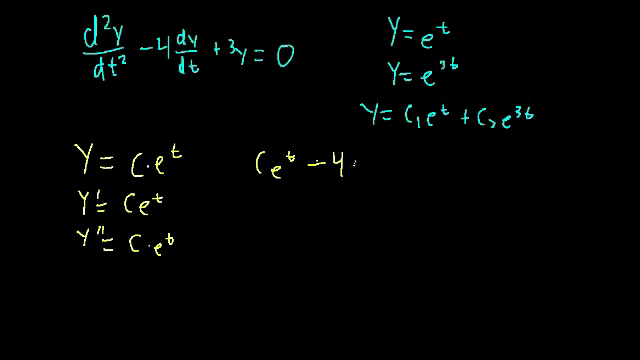 d²y/dt² - 4 dy/dt + 3y = 0
y = e^t
y = e^{3t}
y = c₁e^t + c₂e^{3t}
y = c·e^t
y' = ce^t
y'' = c·e^t
ce^t - 4·